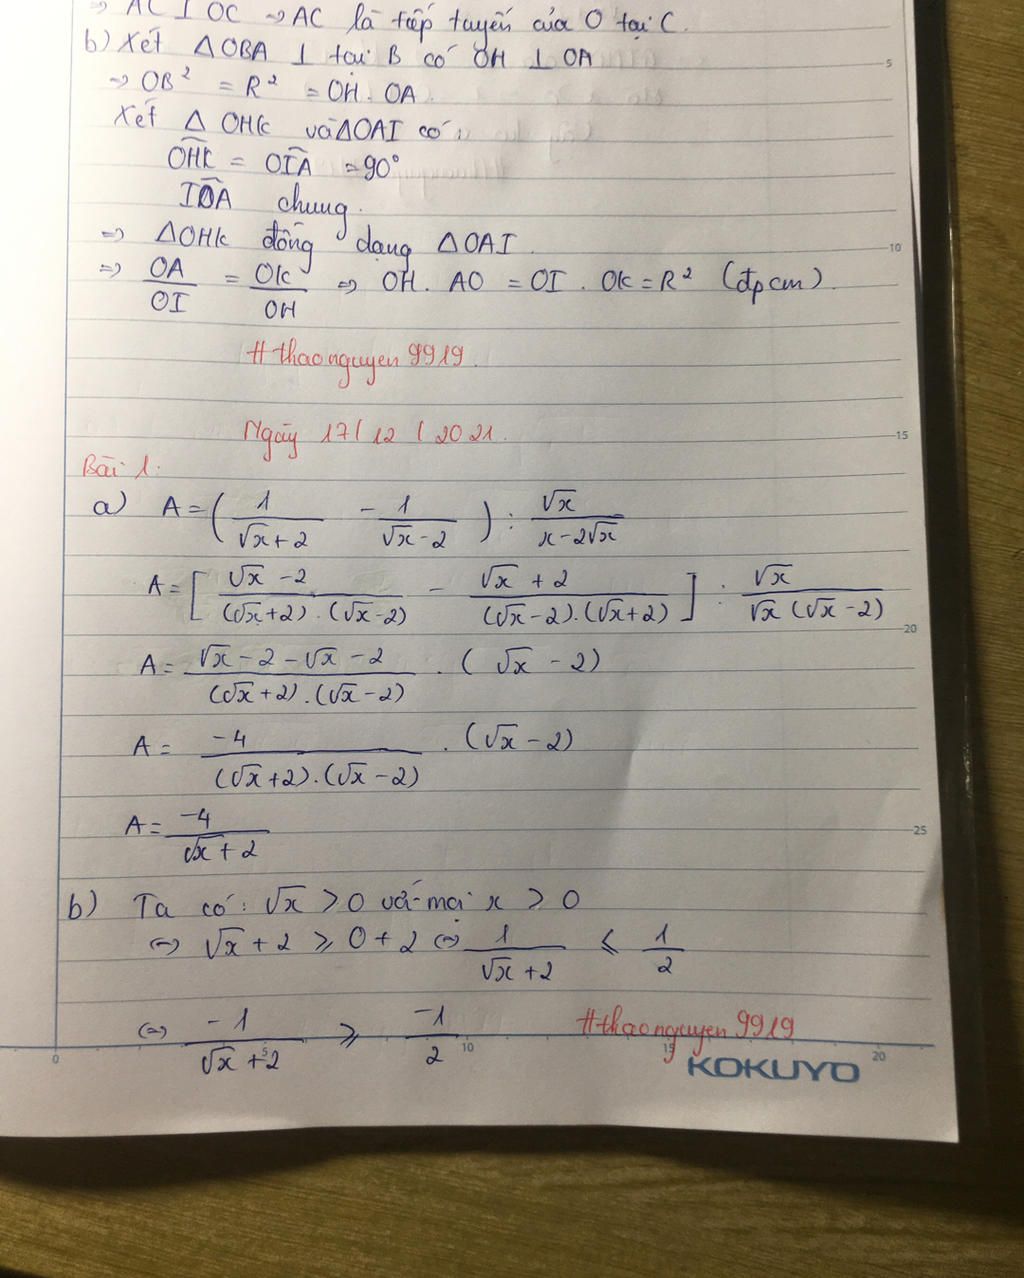 ⇒ AC ⊥ OC ⇒ AC là tiếp tuyến của O tại C.
b) Xét △OBA ⊥ tại B có OH ⊥ OA
⇒ OB² = R² = OH. OA.
Xét △ OHK và △OAI có
OHK = OIA = 90°
IOA chung.
⇒ △OHK đồng dạng △OAI.
⇒ OA/OI = OK/OH ⇒ OH. AO = OI. OK = R² (đpcm).
#thaonguyen9919.
Ngày 17/12/2021.
Bài 1:
a) A = (1/(√x+2) - 1/(√x-2)) : √x/(x-2√x)
A = [(√x-2)/((√x+2).(√x-2)) - (√x+2)/((√x-2).(√x+2))] : √x/(√x(√x-2))
A = (√x-2-√x-2)/((√x+2).(√x-2)) . (√x-2)
A = -4/((√x+2).(√x-2)) . (√x-2)
A = -4/(√x+2)
b) Ta có: √x ≥ 0 với mọi x ≥ 0
⇔ √x+2 ≥ 0+2 ⇔ 1/(√x+2) ≤ 1/2
⇔ -1/(√x+2) ≥ -1/2
#thaonguyen9919
KOKUYO
5
10
15
20
25
0 5 10 15 20